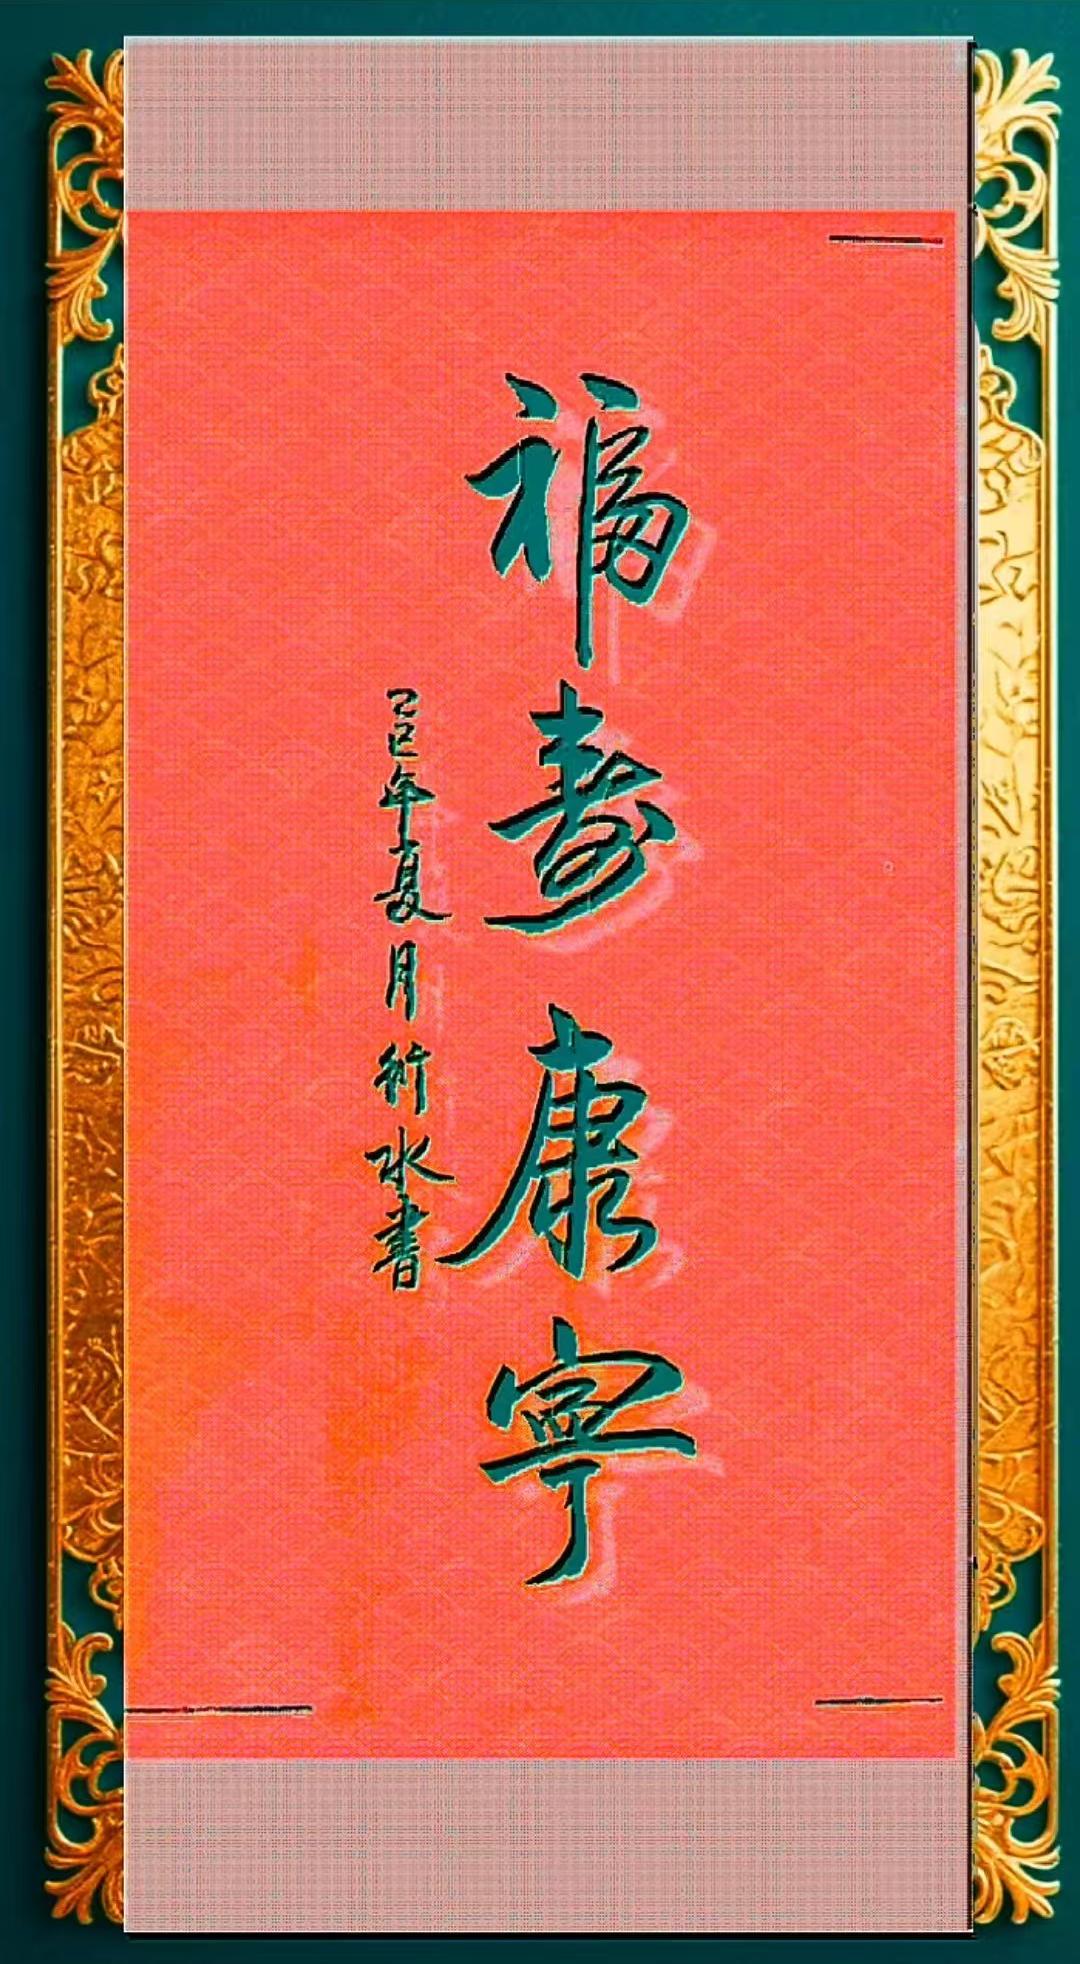 福寿康寧
乙巳年夏月衍水書